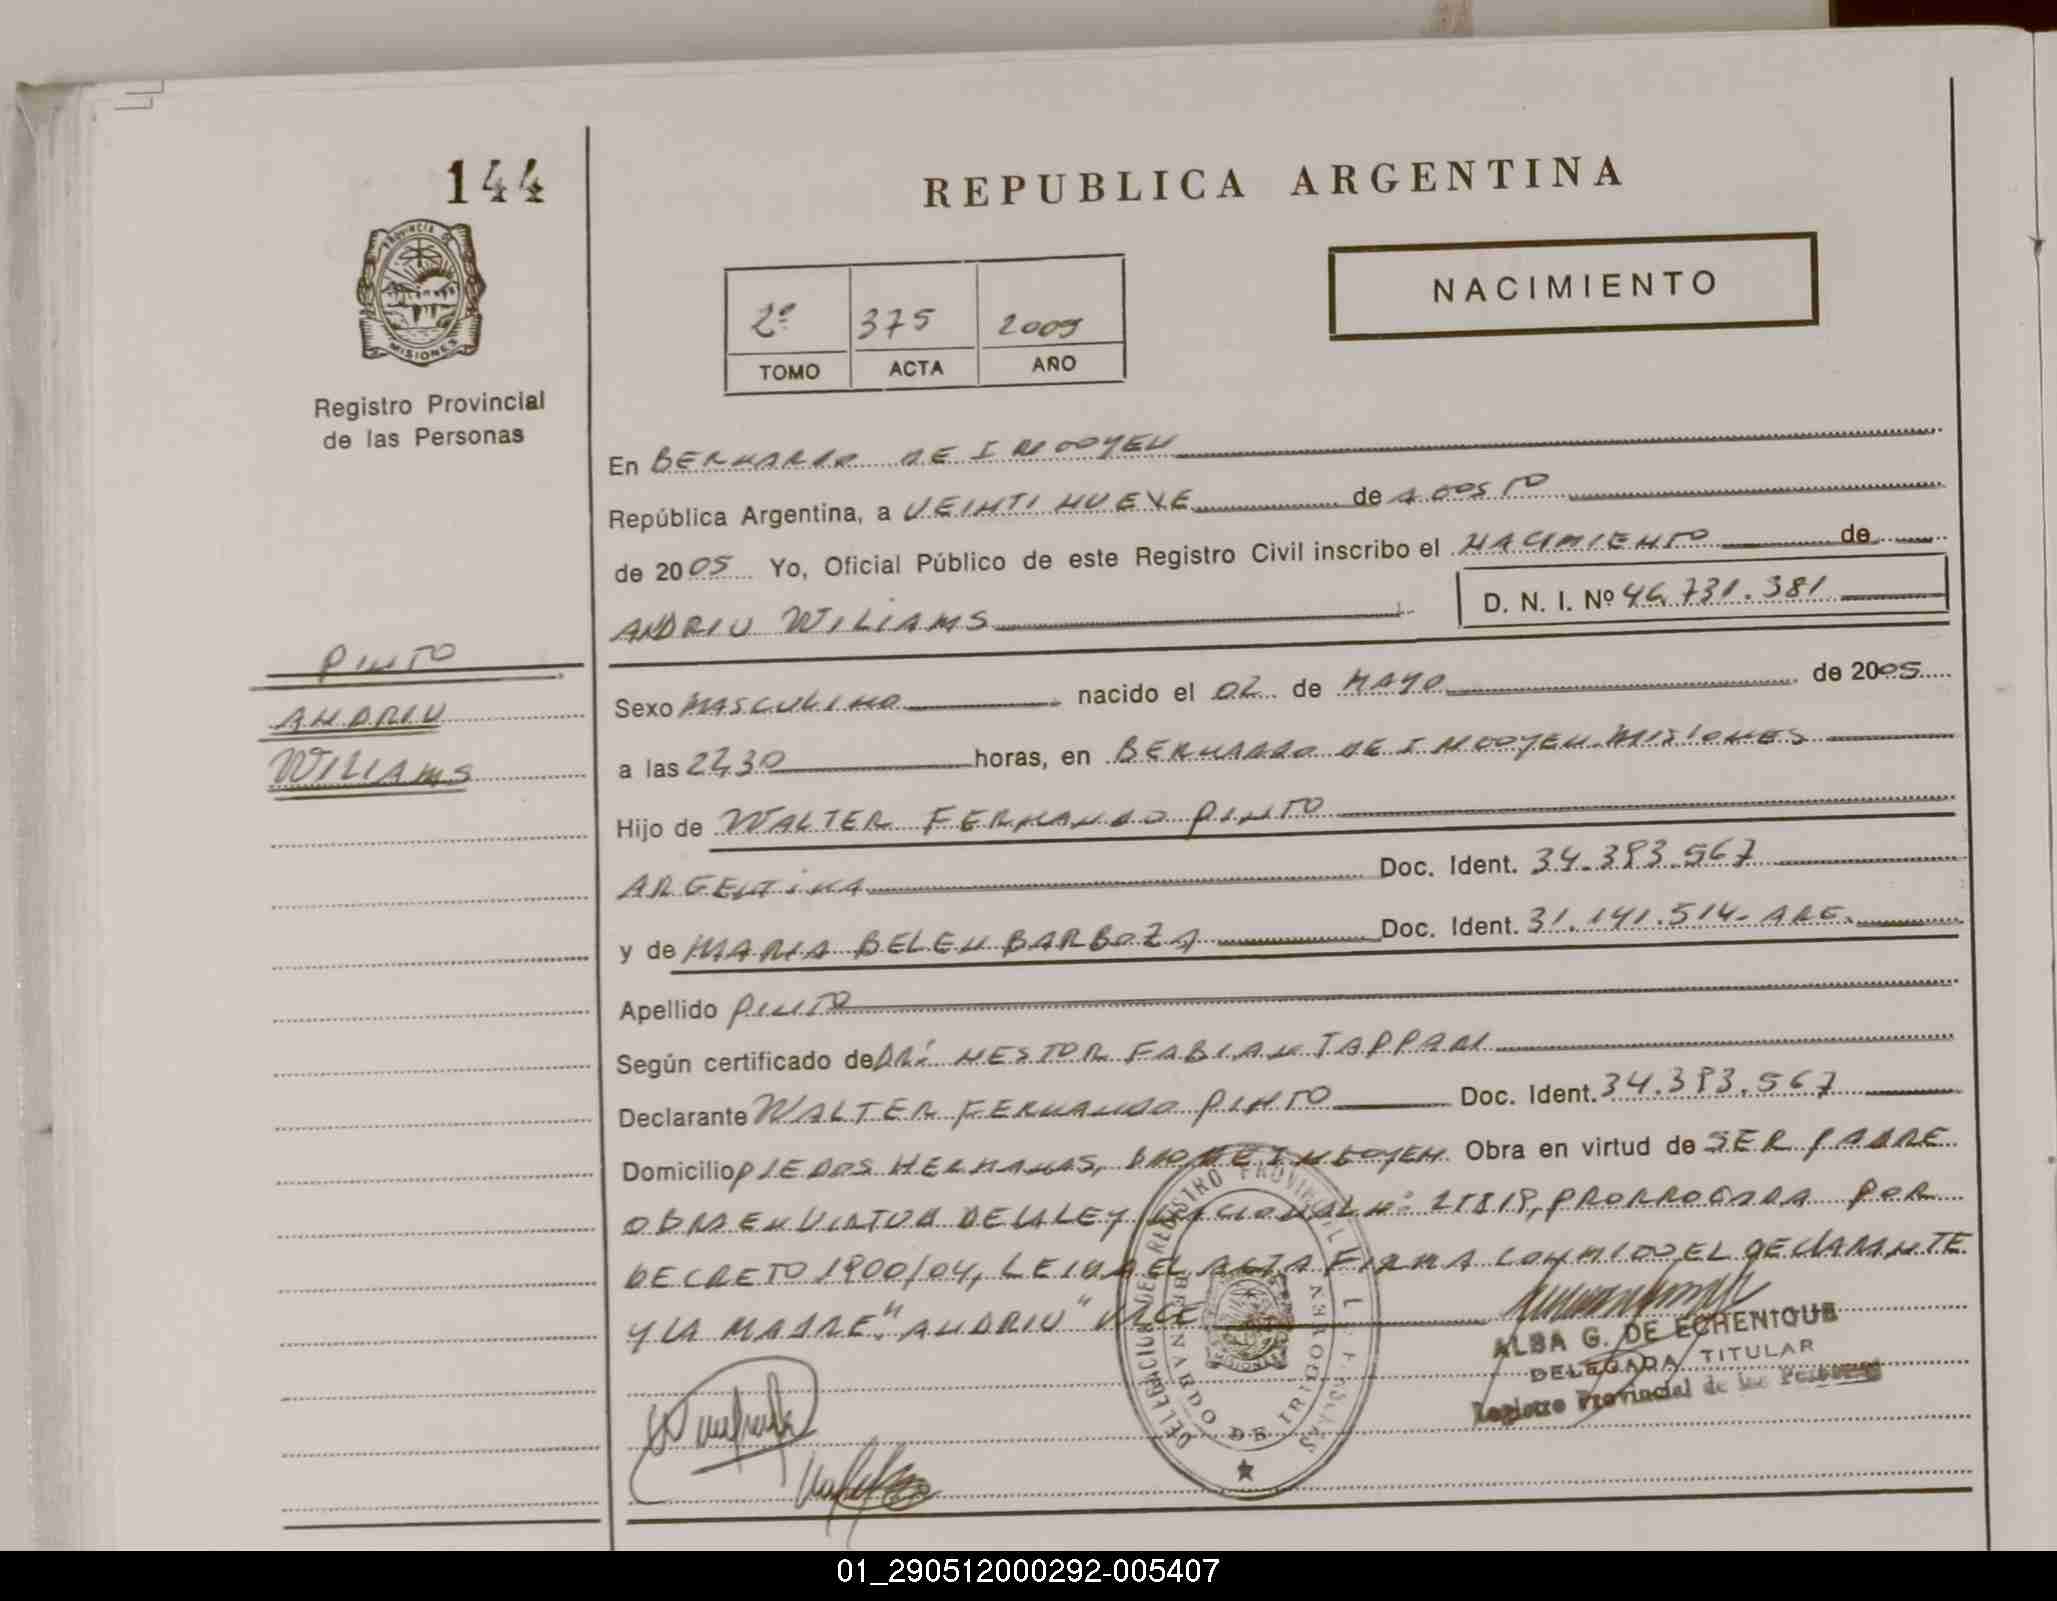 144
REPUBLICA ARGENTINA
NACIMIENTO
PROVINCIA DE
MISIONES
Registro Provincial
de las Personas
2º 375 2005
TOMO ACTA AÑO
En BERNARDO DE IRIGOYEN
República Argentina, a VEINTINUEVE de AGOSTO
de 2005 Yo, Oficial Público de este Registro Civil inscribo el NACIMIENTO de
ANDRIU WILIAMS D. N. I. Nº 46.731.381
PINTO
ANDRIU
WILIAMS
Sexo MASCULINO nacido el 02 de MAYO de 2005
a las 22,30 horas, en BERNARDO DE IRIGOYEN MISIONES
Hijo de WALTER FERNANDO PINTO
ARGENTINA Doc. Ident. 34.383.567
y de MARIA BELEN BARBOZA Doc. Ident. 31.141.514- ARG.
Apellido PINTO
Según certificado de DR: NESTOR FABIAN TAPPARI
Declarante WALTER FERNANDO PINTO Doc. Ident. 34.383.567
Domicilio PJE DOS HERMANAS, BDO DE IRIGOYEN Obra en virtud de SER PADRE
OBRA EN VIRTUD DE LA LEY NACIONAL Nº 25819, PRORROGADA POR
DECRETO 1900/04, LEIDA EL ACTA FIRMA CONMIGO EL DECLARANTE
Y LA MADRE. "ANDRIU" VALE
DELEGACION DE REGISTRO PROVINCIAL
BERNARDO DE IRIGOYEN
ALBA G. DE ECHENIQUE
DELEGADA TITULAR
Registro Provincial de las Personas
01_290512000292-005407